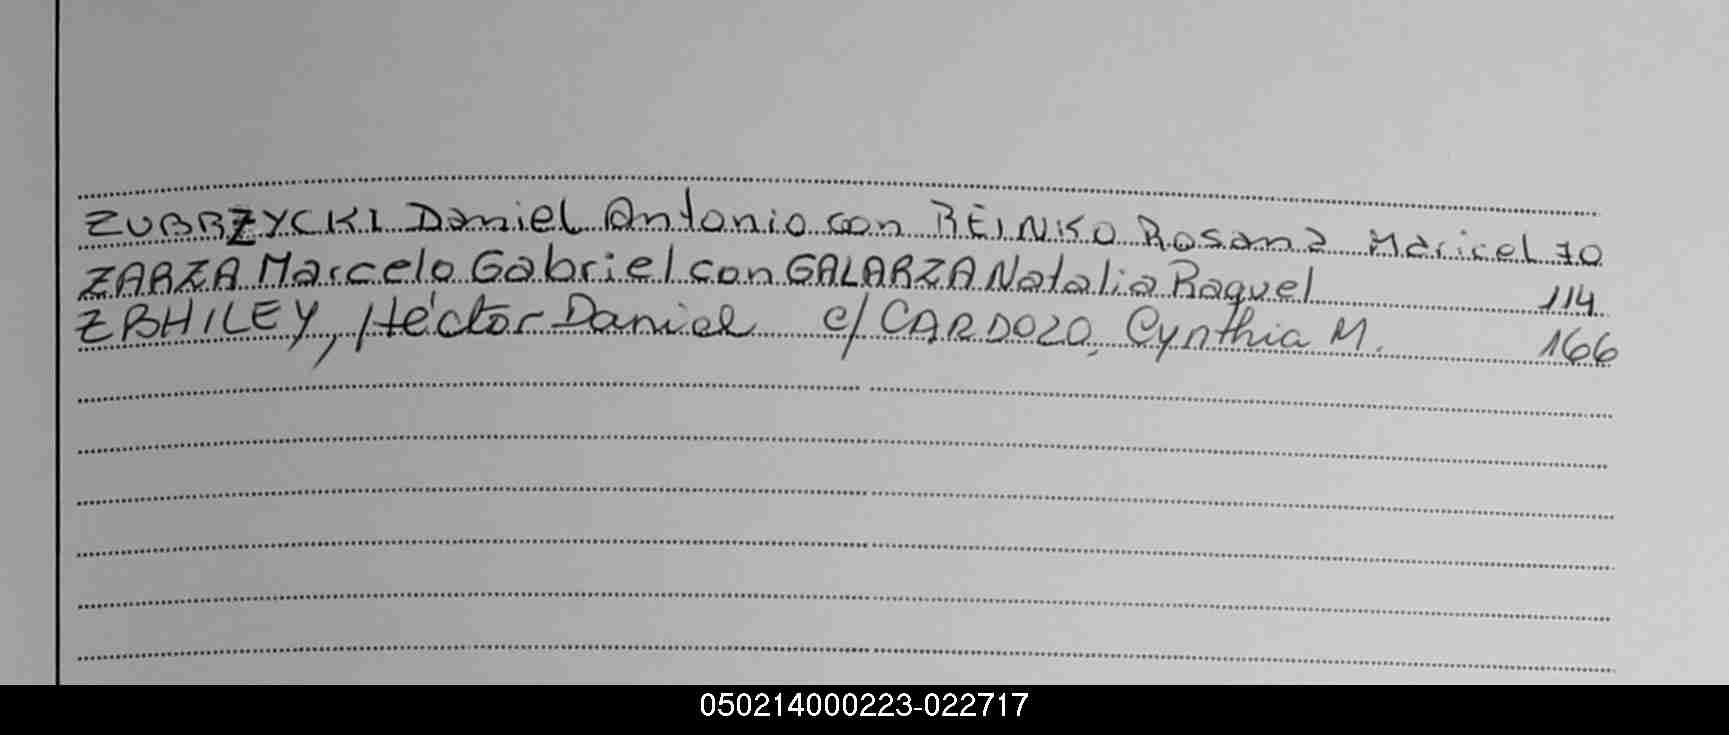 ZUBRZYCKI Daniel Antonio con REINKO Rosana Maricel 70
ZARZA Marcelo Gabriel con GALARZA Natalia Raquel 114
ZBHILEY, Héctor Daniel c/ CARDOZO, Cynthia M. 166
050214000223-022717